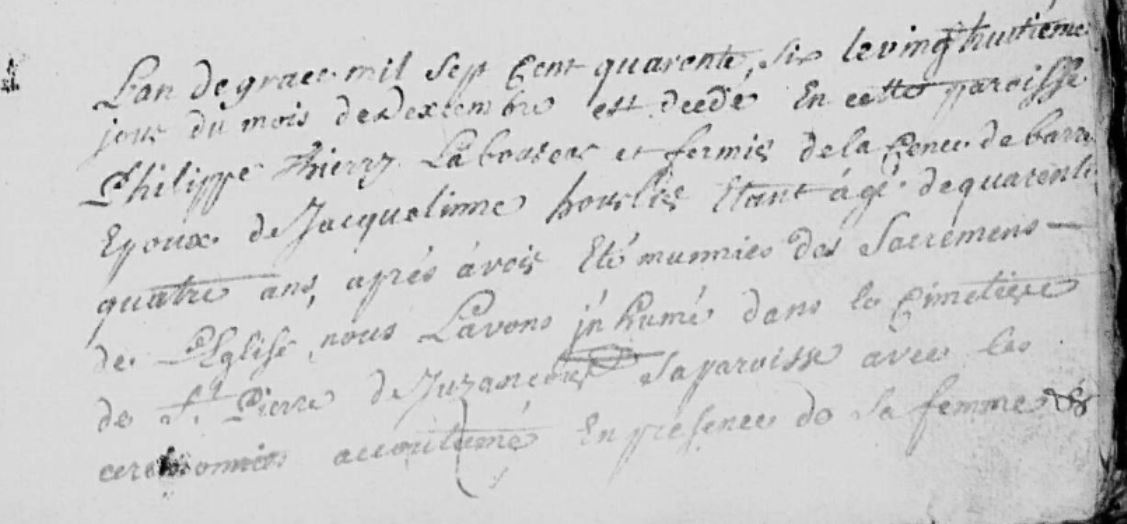 Lan de grace mil sept Cent quarente, six le ving huitiéme
jour du mois de dexcembre est decedé En cette paroisse
Philippe Thierry Laboureur et fermier de la Cence de barre
Epoux de Jacquelinne Étant ágé de quarente
quatre ans, aprés ávoir Eté munnies des Sacremens —
de LEglise nous Lavons jnhumé dans le Cimetiere
de St Pierre de Juzancour Sa paroisse avec les
ceremonnies accoutumé En presence de Sa femme &